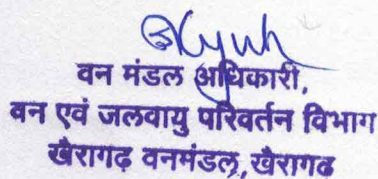 वन मंडल अधिकारी,
वन एवं जलवायु परिवर्तन विभाग
खैरागढ़ वनमंडल, खैरागढ